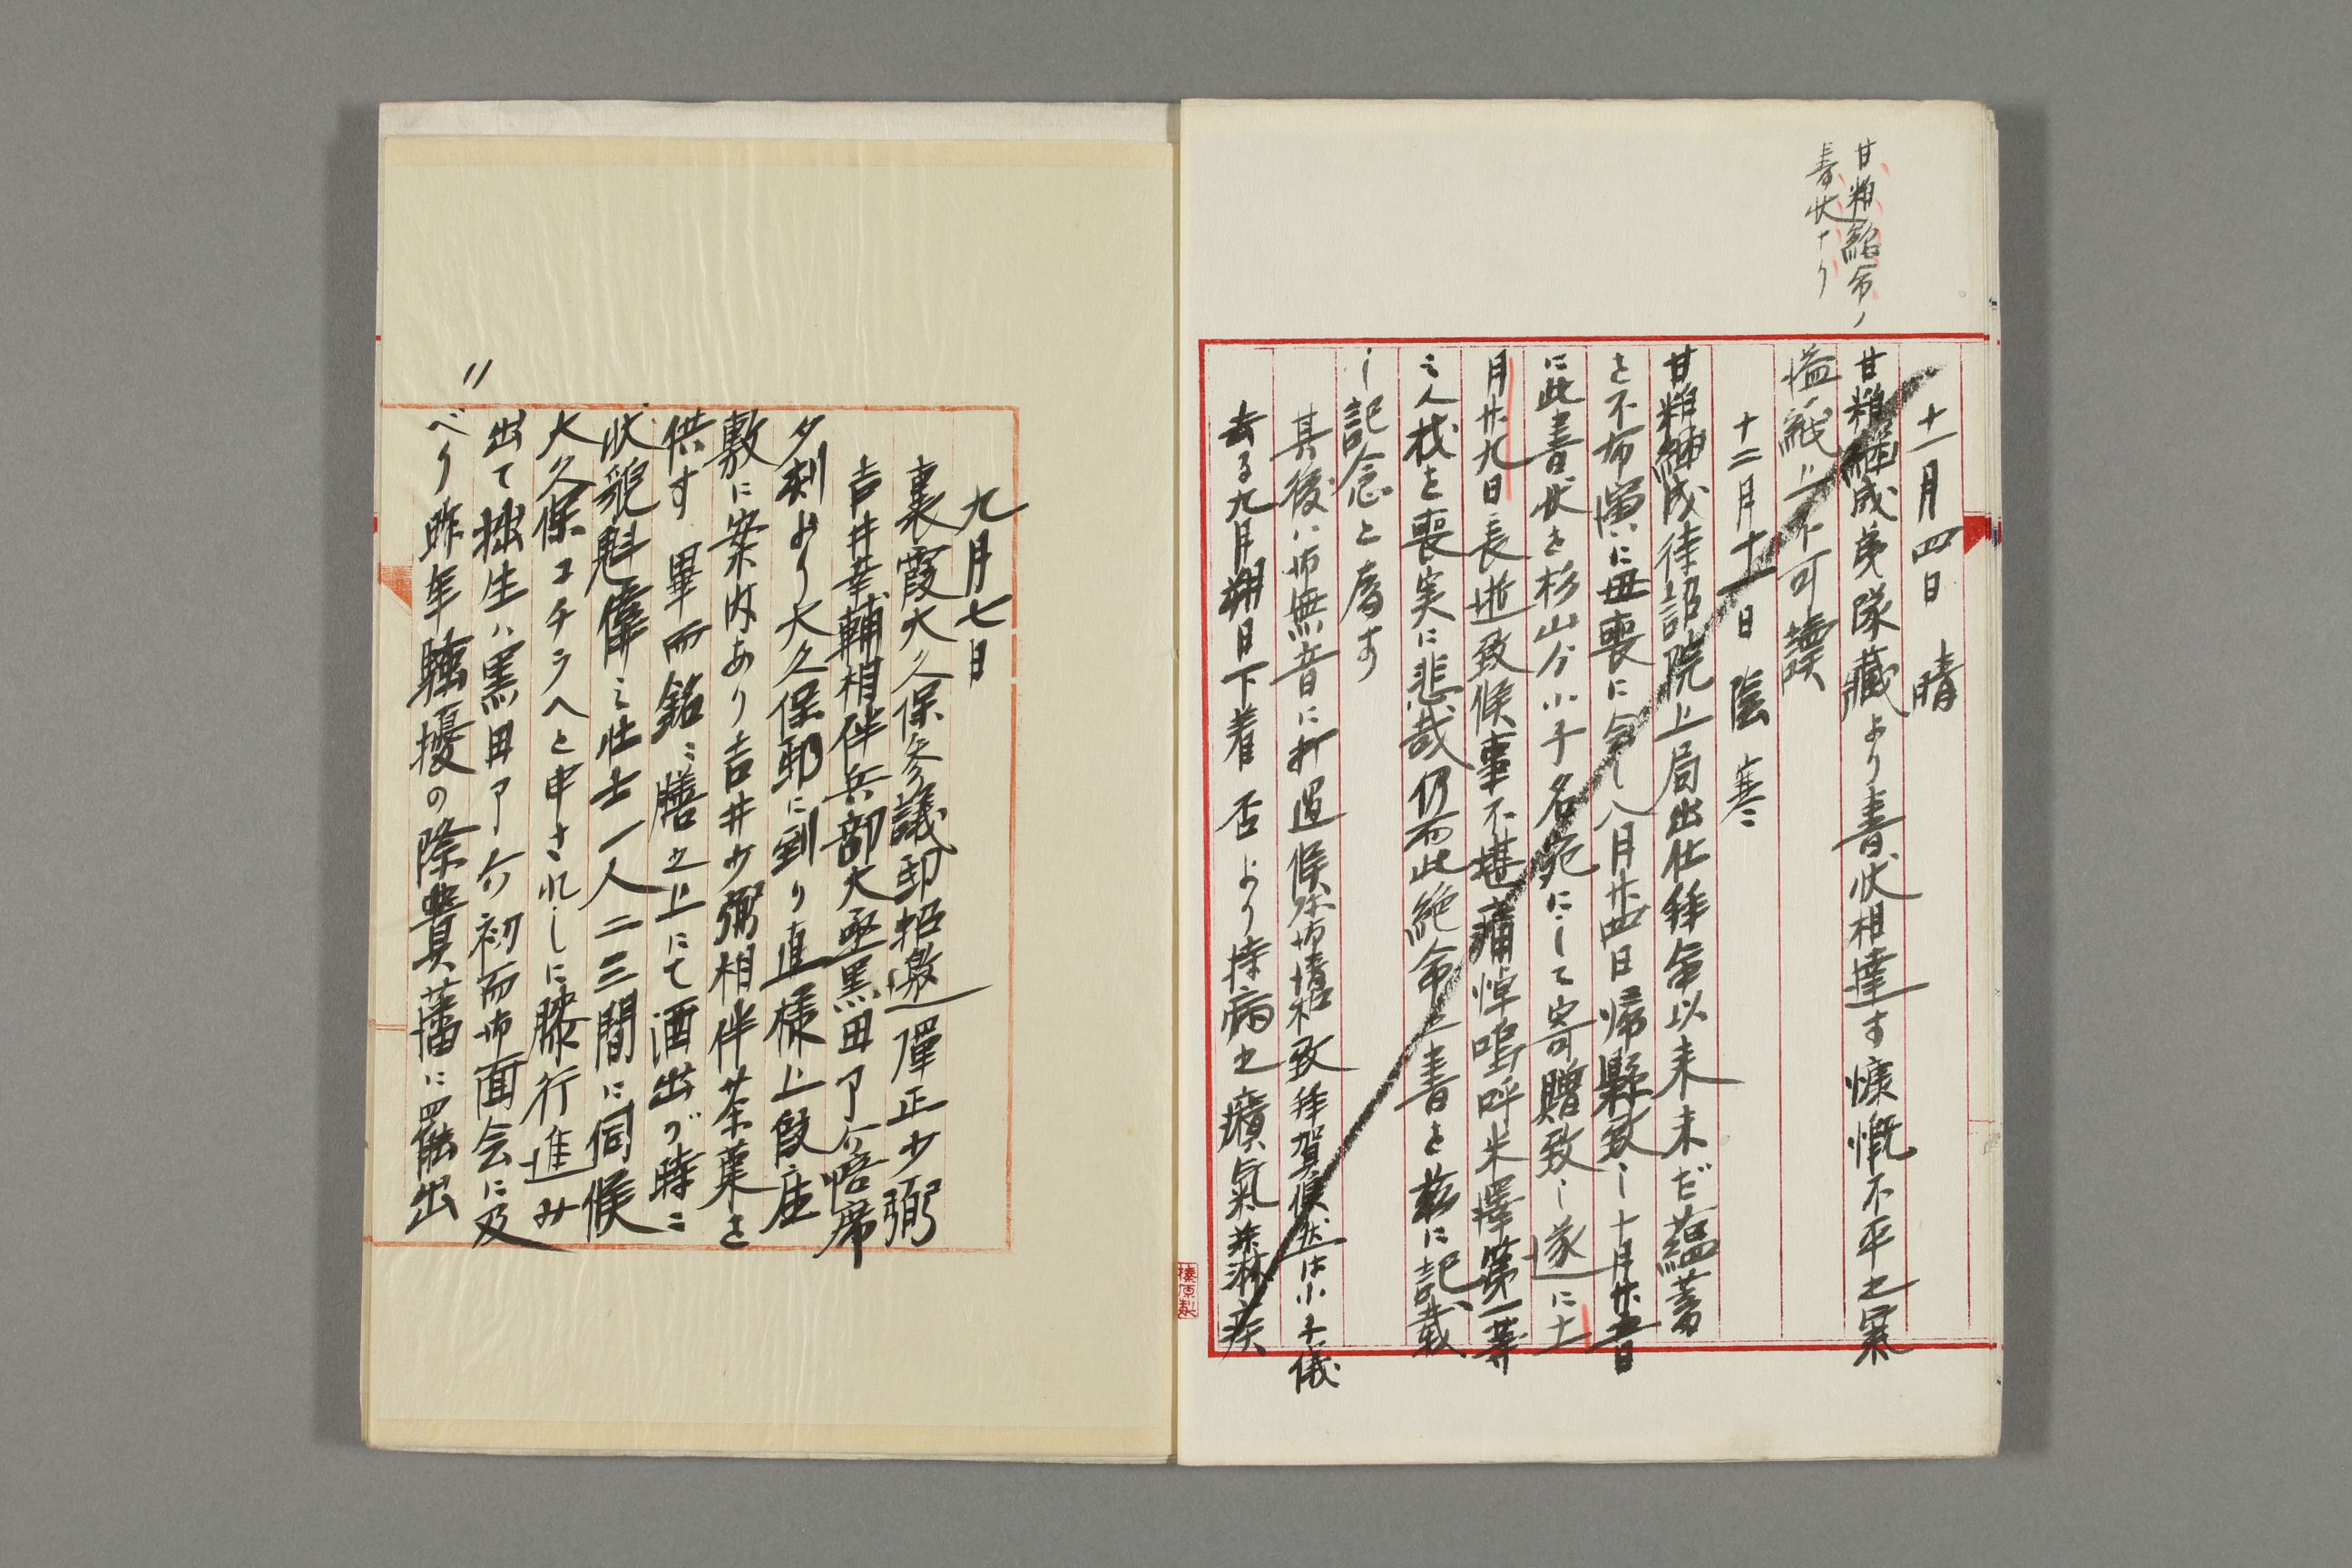 甘粕紹命ノ
書状ナリ
十一月四日 晴
甘粕継成弟隊蔵より書状相達す慷慨不平之気
溢紙上不可読
十二月十一日 陰寒
甘粕継成待詔院上局出仕拝命以来未だ蘊蓄
を不布演に毋喪に会て八月廿四日帰縣致し十月廿五日
に此書状を杉山分小子名宛にして寄贈致し遂に十一
月廿九日長逝致候事不堪痛悼嗚呼米澤第一等
之人材を喪実に悲哉仍而此絶命之書を茲に記載
し記念と為す
其後ハ御無音に打過候処御揃致拝賀候然は小子儀
去る九月朔日下着否より持病之癪氣并淋疾
九月七日
裏霞大久保参議邸招邀弾正少弼
吉井幸輔相伴兵部大丞黒田了介陪席
夕刻より大久保邸に到り直様上段座
敷に案内あり吉井少弼相伴茶菓を
供す 畢而銘々膳之上にて酒出づ時ニ
状貌魁偉之壮士一人二三間に伺候
大久保コチラへと申されしに膝行進み
出て拙生ハ黒田了介初而御面会に及
〃べり昨年騒擾の際貴藩に罷出
榛原製